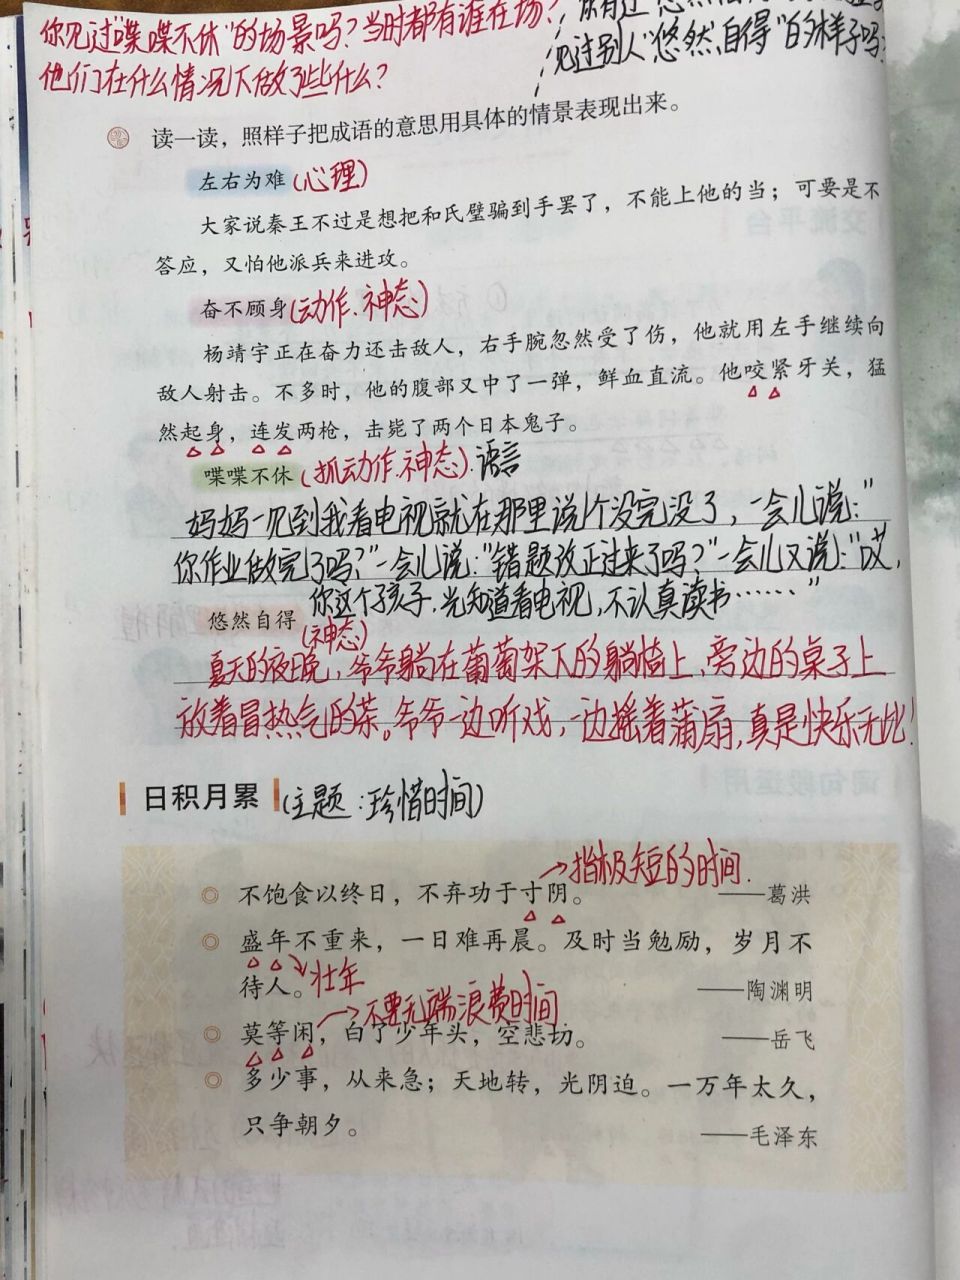 你见过"喋喋不休"的场景吗？当时都有谁在场？
他们在什么情况下做了些什么？
见过别人"悠然自得"的样子吗？
读一读，照样子把成语的意思用具体的情景表现出来。
左右为难(心理)
大家说秦王不过是想把和氏璧骗到手罢了，不能上他的当；可要是不
答应，又怕他派兵来进攻。
奋不顾身(动作.神态)
杨靖宇正在奋力还击敌人，右手腕忽然受了伤，他就用左手继续向
敌人射击。不多时，他的腹部又中了一弹，鲜血直流。他咬紧牙关，猛
然起身，连发两枪，击毙了两个日本鬼子。
喋喋不休(抓动作.神态).语言
妈妈一见到我看电视就在那里说个没完没了，一会儿说："
你作业做完了吗？"一会儿说："错题改正过来了吗？"一会儿又说："哎，
你这个孩子.光知道看电视,不认真读书……"
悠然自得(神态)
夏天的夜晚，爷爷躺在葡萄架下的躺椅上，旁边的桌子上
放着冒热气的茶。爷爷一边听戏，一边摇着蒲扇,真是快乐无比！
日积月累(主题：珍惜时间)
→指极短的时间.
不饱食以终日，不弃功于寸阴。——葛洪
盛年不重来，一日难再晨。及时当勉励，岁月不
待人。壮年 ——陶渊明
→不要无端浪费时间
莫等闲，白了少年头，空悲切。——岳飞
多少事，从来急；天地转，光阴迫。一万年太久，
只争朝夕。——毛泽东